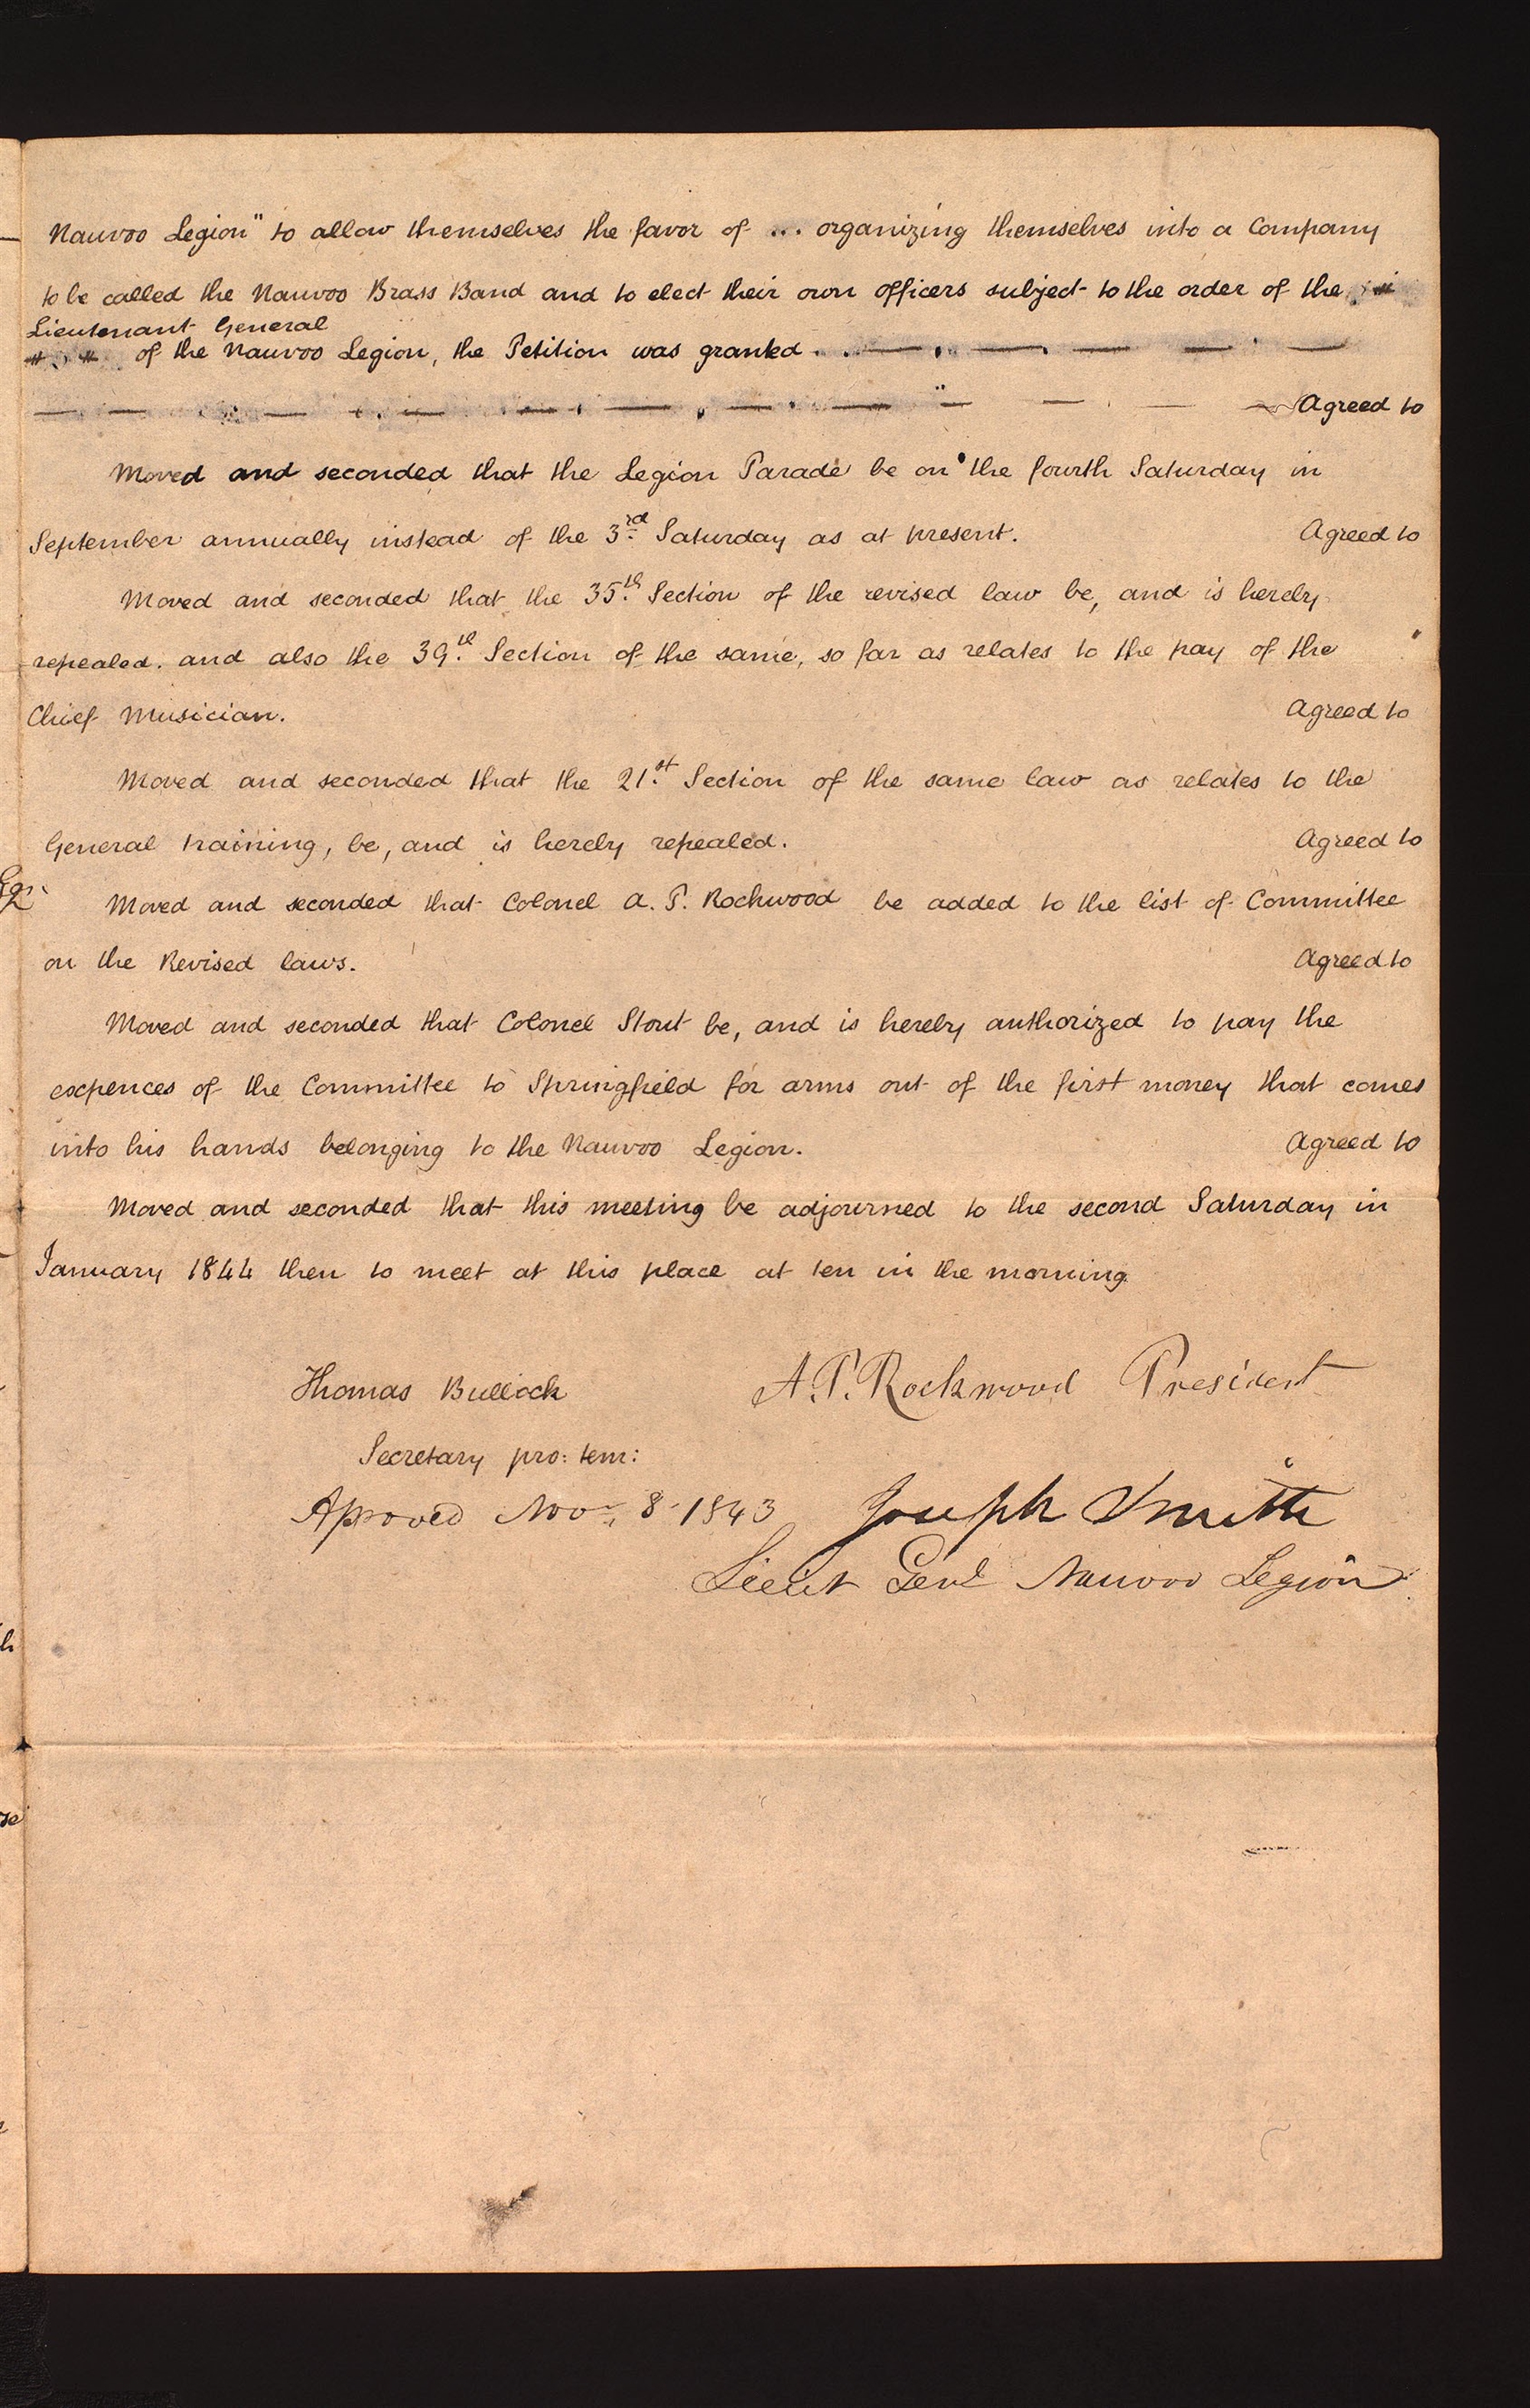 Nauvoo Legion" to allow themselves the favor of ... organizing themselves into a Company
to be called the Nauvoo Brass Band and to elect their own officers subject to the order of the
Lieutenant General
of the Nauvoo Legion, the Petition was granted.
Agreed to
Moved and seconded that the Legion Parade be on the fourth Saturday in
September annually instead of the 3rd Saturday as at present. Agreed to
Moved and seconded that the 35th Section of the revised law be, and is hereby
repealed. and also the 39th Section of the same, so far as relates to the pay of the
Chief Musician. Agreed to
Moved and seconded that the 21st Section of the same law as relates to the
General training, be, and is hereby repealed. Agreed to
Moved and seconded that Colonel A. P. Rockwood be added to the list of Committee
on the Revised laws. Agreed to
Moved and seconded that Colonel Stout be, and is hereby authorized to pay the
expences of the Committee to Springfield for arms out of the first money that comes
into his hands belonging to the Nauvoo Legion. Agreed to
Moved and seconded that this meeting be adjourned to the second Saturday in
January 1844 then to meet at this place at ten in the morning
Thomas Bullock A. P. Rockwood President
Secretary pro: tem:
Aproved Nov. 8 1843 Joseph Smith
Lieut Genl Nauvoo Legion